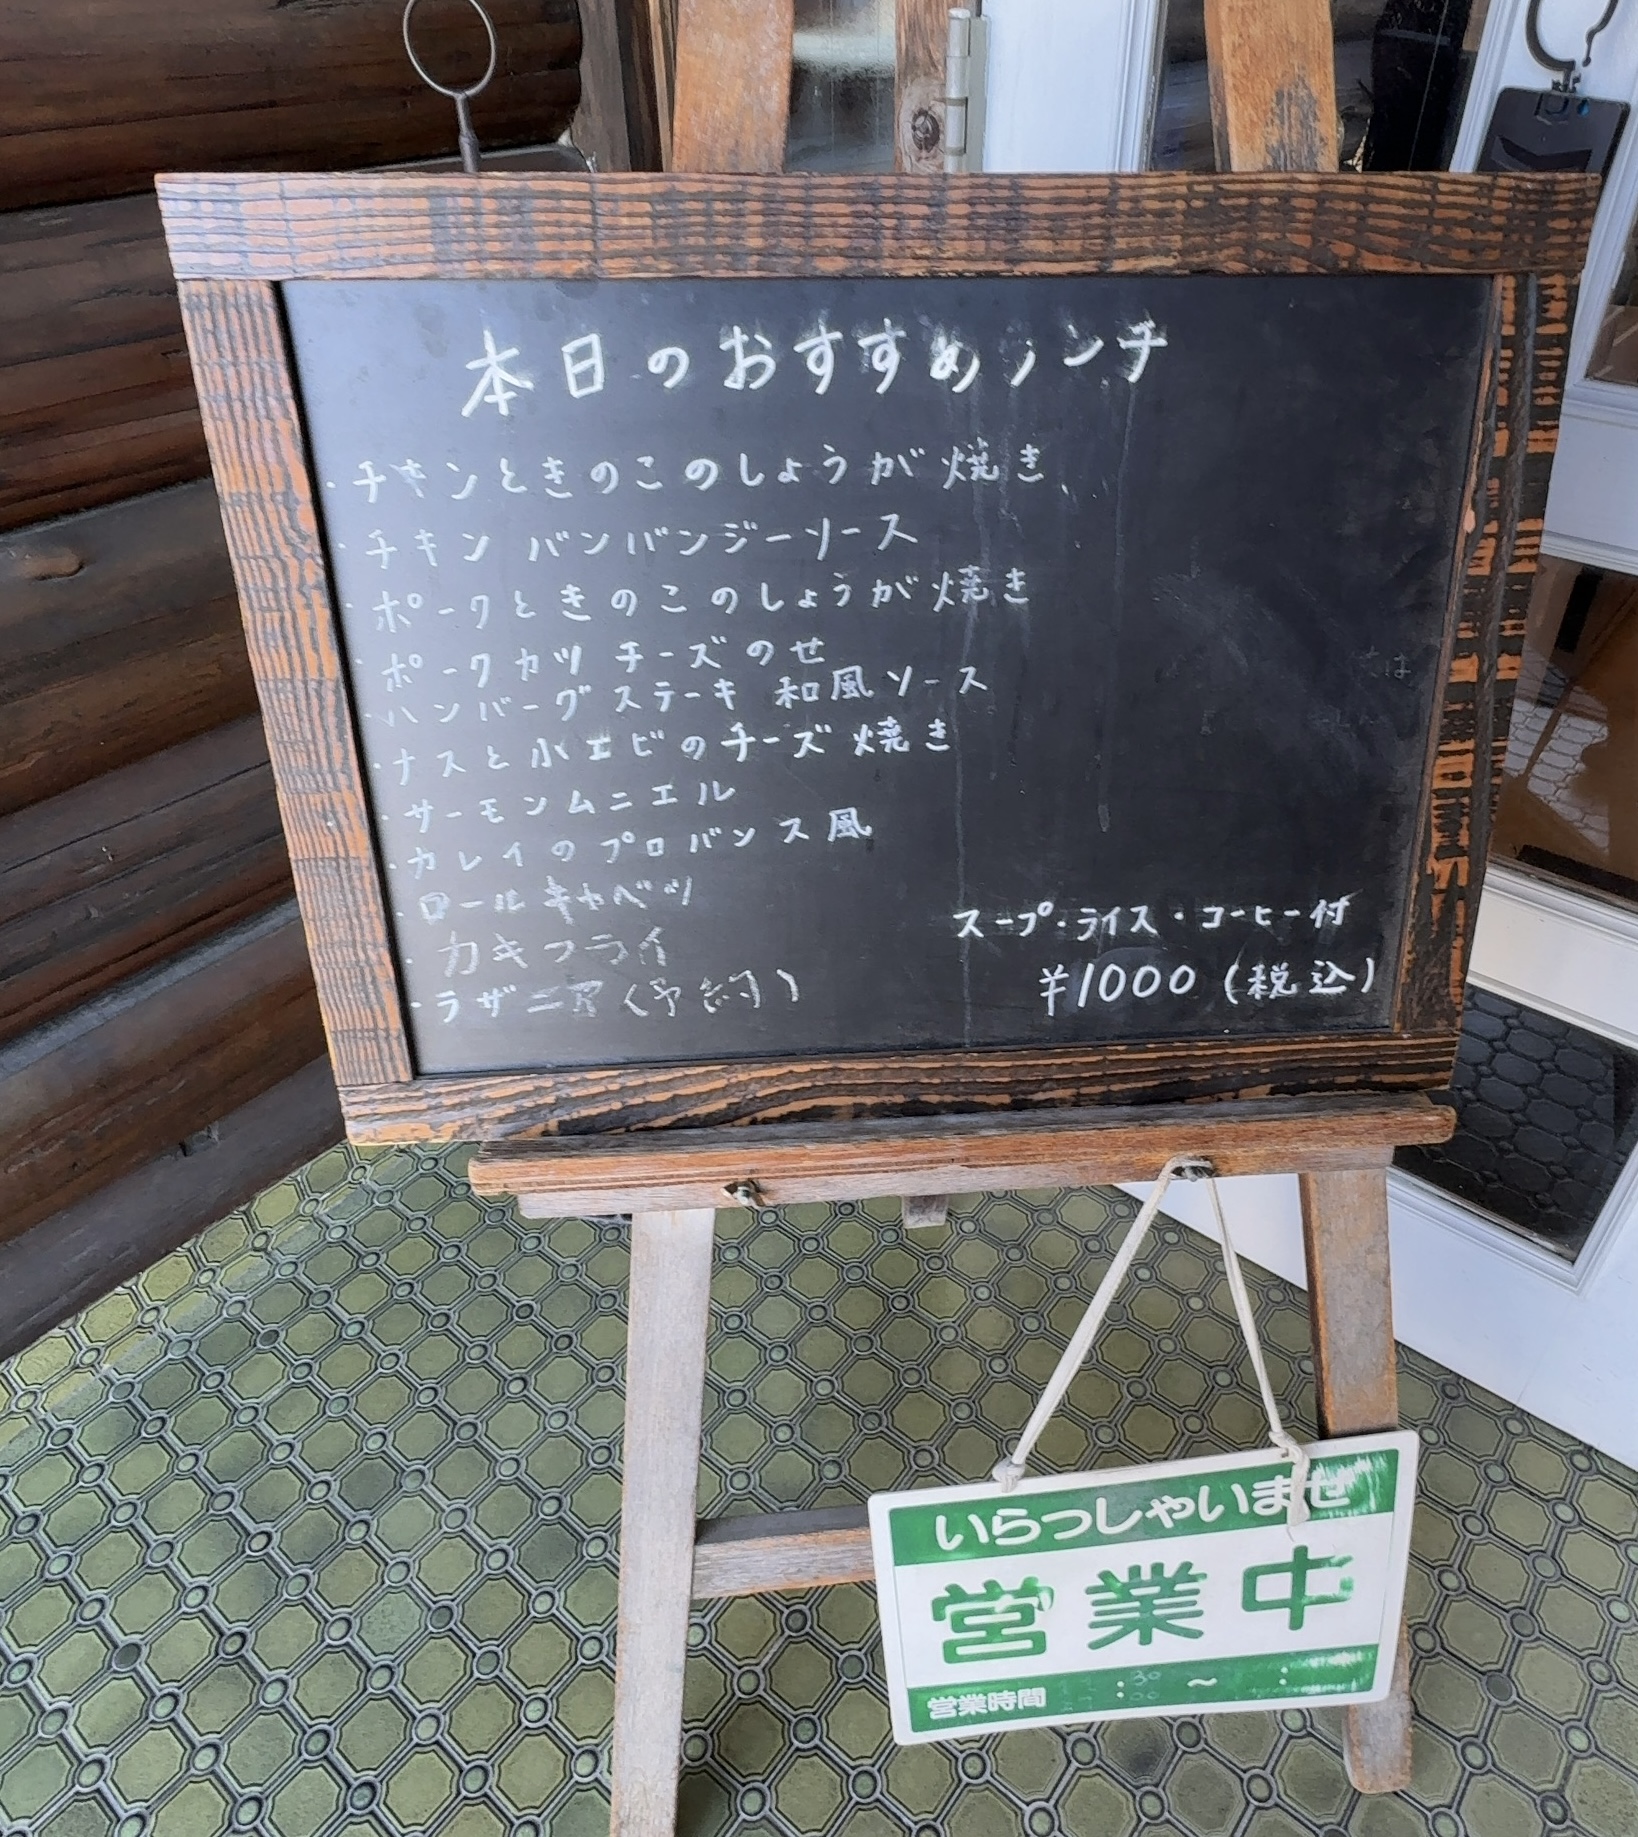 本日のおすすめランチ
・チキンときのこのしょうが焼き
・チキン バンバンジーソース
・ポークときのこのしょうが焼き
・ポークカツ チーズのせ
・ハンバーグステーキ 和風ソース
・ナスと小エビのチーズ焼き
・サーモンムニエル
・カレイのプロバンス風
・ロールキャベツ
・カキフライ
・ラザニア(予約)
スープ・ライス・コーヒー付
¥1000(税込)
いらっしゃいませ
営業中
営業時間 : ～ :